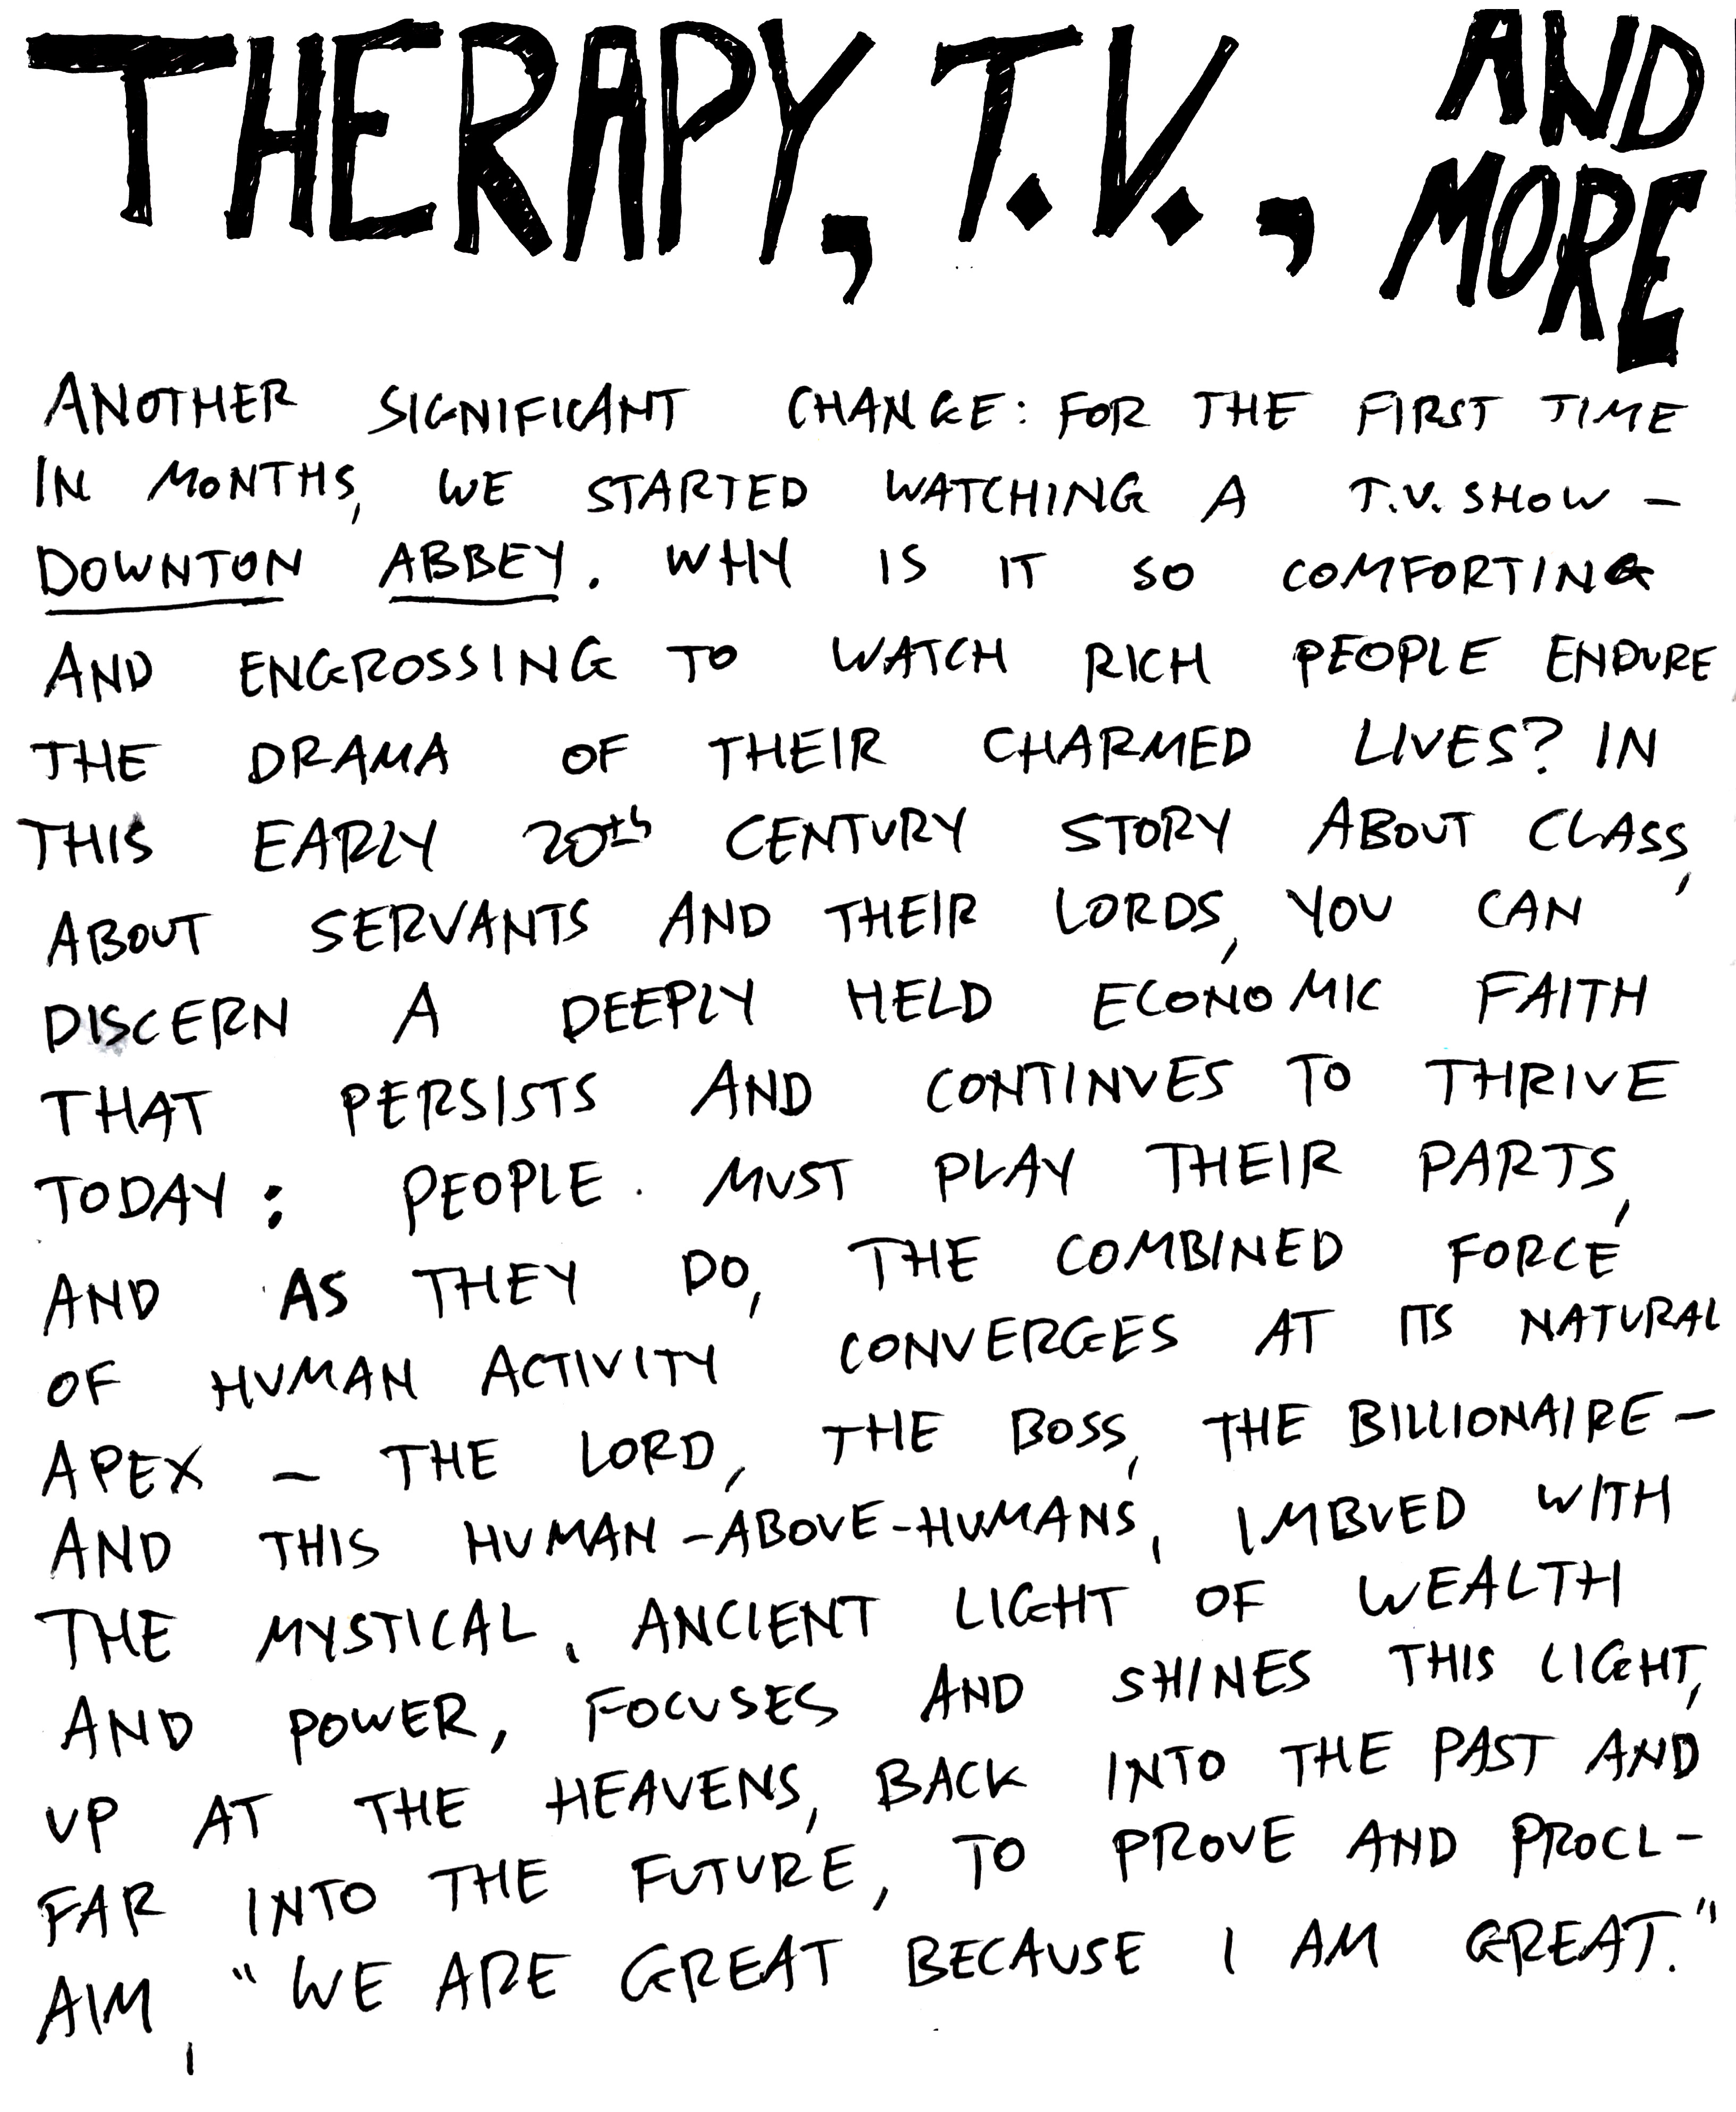 THERAPY, T.V., AND
MORE
ANOTHER SIGNIFICANT CHANGE: FOR THE FIRST TIME
IN MONTHS, WE STARTED WATCHING A T.V. SHOW –
DOWNTON ABBEY. WHY IS IT SO COMFORTING
AND ENGROSSING TO WATCH RICH PEOPLE ENDURE
THE DRAMA OF THEIR CHARMED LIVES? IN
THIS EARLY 20th CENTURY STORY ABOUT CLASS,
ABOUT SERVANTS AND THEIR LORDS, YOU CAN
DISCERN A DEEPLY HELD ECONOMIC FAITH
THAT PERSISTS AND CONTINUES TO THRIVE
TODAY: PEOPLE MUST PLAY THEIR PARTS,
AND AS THEY DO, THE COMBINED FORCE
OF HUMAN ACTIVITY CONVERGES AT ITS NATURAL
APEX – THE LORD, THE BOSS, THE BILLIONAIRE –
AND THIS HUMAN-ABOVE-HUMANS, IMBUED WITH
THE MYSTICAL, ANCIENT LIGHT OF WEALTH
AND POWER, FOCUSES AND SHINES THIS LIGHT,
UP AT THE HEAVENS, BACK INTO THE PAST AND
FAR INTO THE FUTURE, TO PROVE AND PROCL-
AIM, "WE ARE GREAT BECAUSE I AM GREAT."